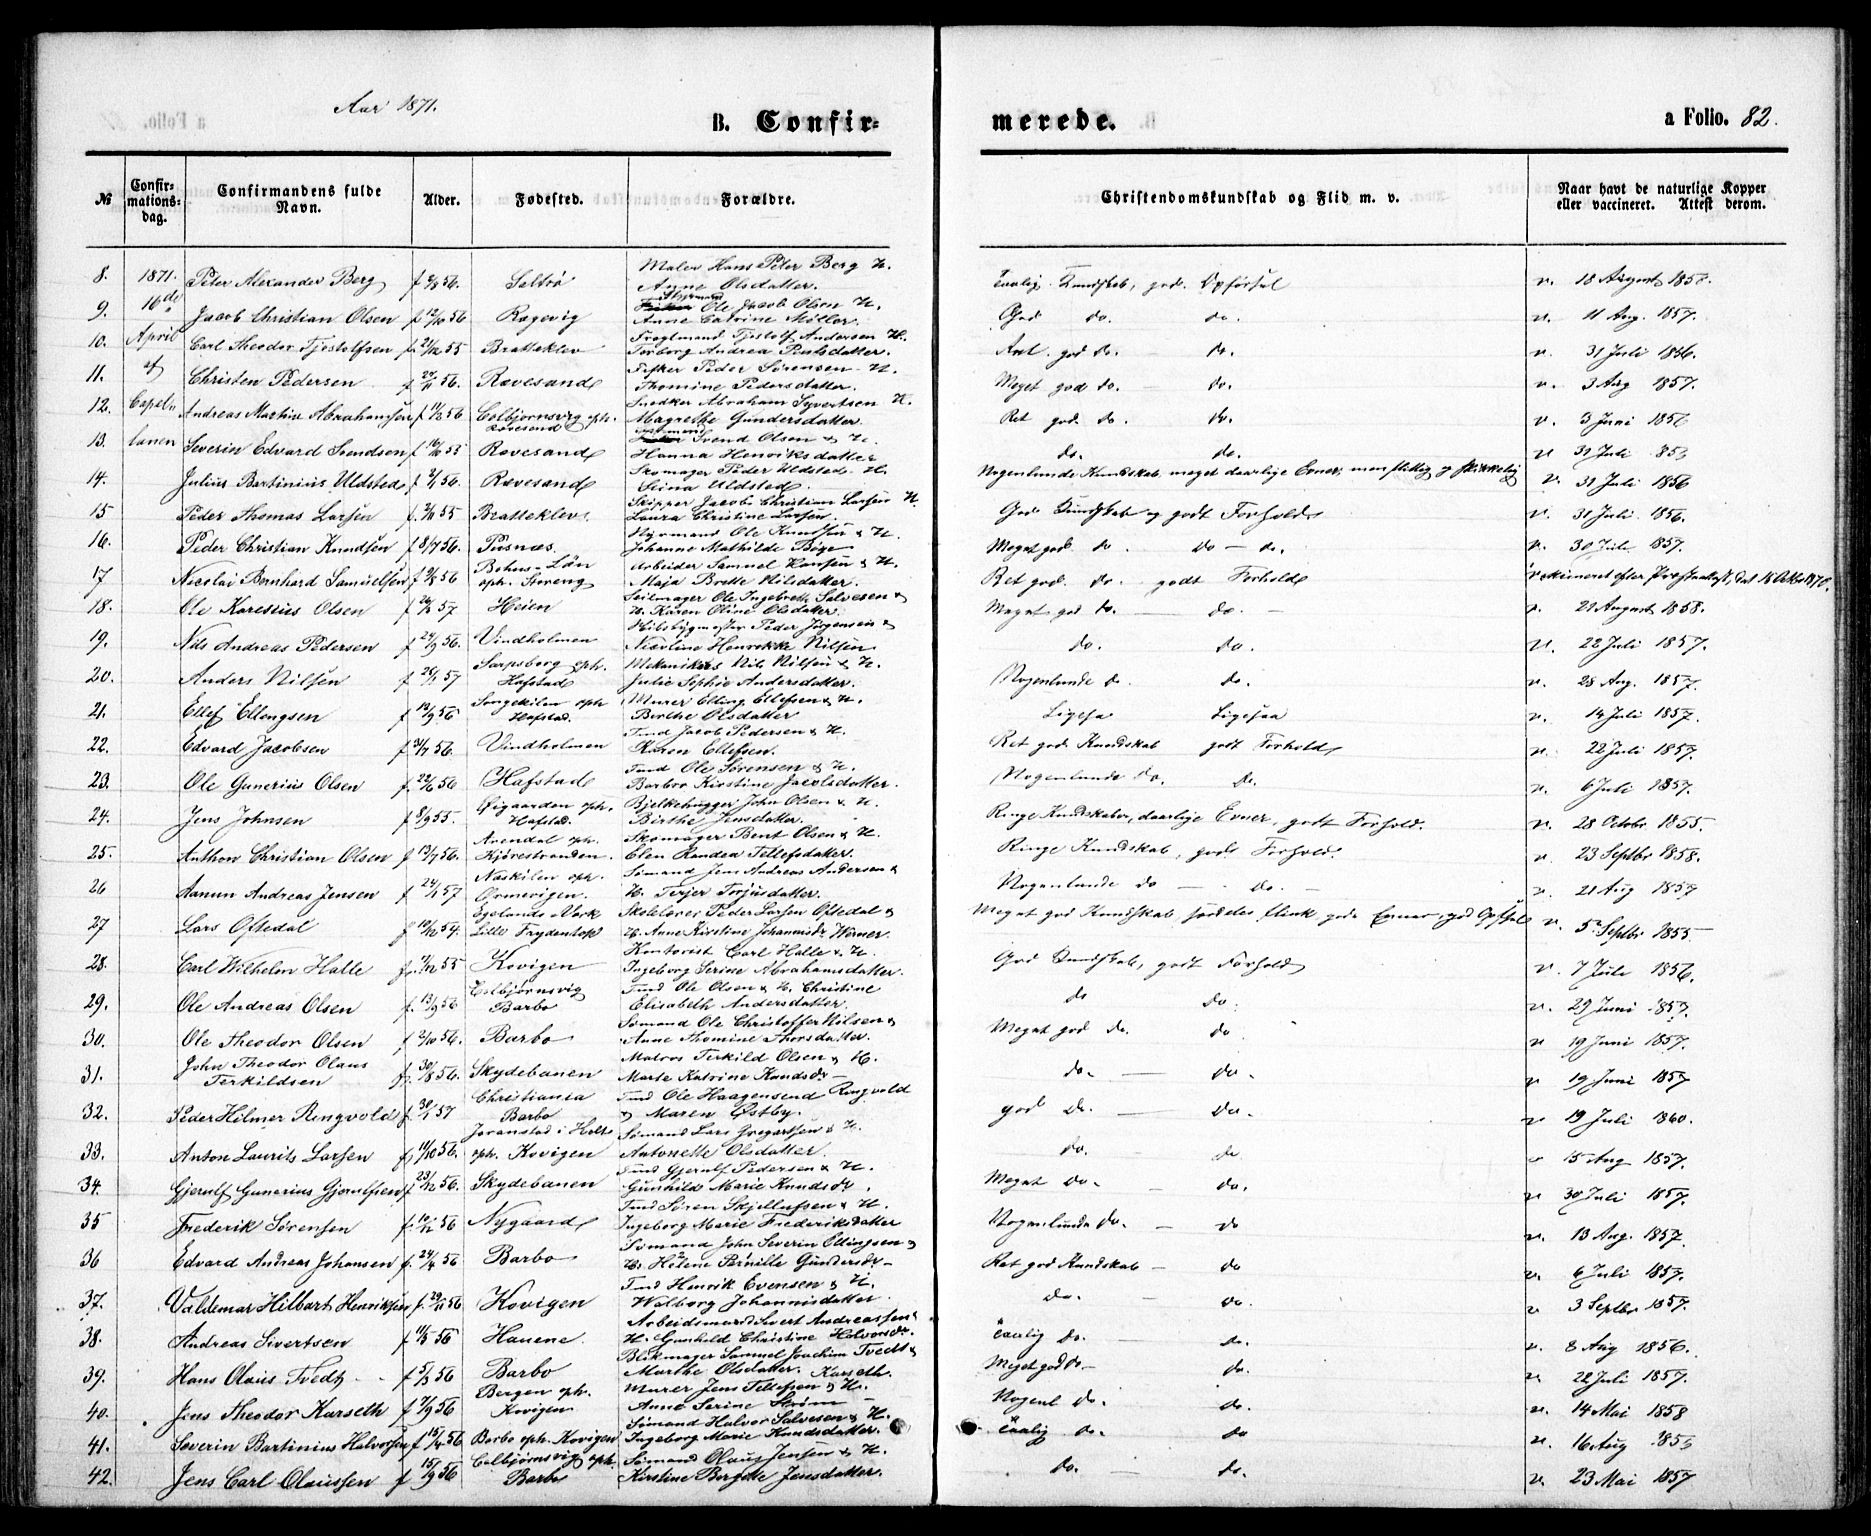 Aar 1871.
B. Confir-
merede.
a Folio. 82.
№
Confir-
mations-
dag.
Confirmandens fulde
Navn.
Alder.
Fødested.
Forældre.
Christendomskundskab og Flid m. v.
Naar havt de naturlige Kopper
eller vaccineret. Attest derom.
Maler Hans Peter Berg &. H.
8. 1871. Peter Alexander Berg Anne Olsdatter. God Opførsel v. 18 August 1858.
Styrmand Ole Jacob Olsen H.
9. 16de Jacob Christian Olsen f 12/10 56 Ragevig Anne Catrine Møller. God do. do. v. 11 Aug. 1857.
Tjostolf Andersen H.
10. April Carl Theodor Tjostolfsen f. 21/12 55 Bratteklev Torborg Andrea god do. do. v. 31 Juli 1856.
Fisker Peder Sørensen H.
11. Christen Pedersen f 24/11 56. Rævesand Thomine Pedersdatter. Meget god do. do. v. 3 Aug 1857.
Snedker Abraham Syvertsen H.
12. Capeln Andreas Martin Abrahamsen f 11/3 56 Colbjørnsvig oph. Rævesand Magrethe Gundersdatter Ret god do. do. v. 3 Juni 1856
Svend Olsen & H.
13. lanen Severin Edvard Svendsen f 16/10 55 Rævesand Hanna Henriksdatter do. do. v 31 Juli 185
Skomager Peder Uldsted H
14. Julius Bertinius Uldsted f 2/1 56. Rævesand Stina Uldsted. Nogenlunde Kundskab, meget daarlige Evner, men flittig og skikkelig v. 31 Juli 1856
Skipper Jacob Christian Larsen H.
15 Peder Thomas Larsen f. 2/11 55 Bratteklev. Laura Christine Larsen. God Kundskab og godt Forhold v. 31 Juli 1856.
Styrmand Ole Knudsen & H.
16. Peder Christian Knudsen f 8/7 56. Pusnæs. Johanne Mathilde Bøge Meget god do do — do. v. 30 Juli 1857.
Bohus-Län Arbeider Samuel Hansen & H.
17 Nicolai Bernhard Samuelsen f 2/8 56 oph. Maja Britte Nilsdatter. Ret god do. godt Forhold
Seilmager Ole Ingebreth Salvesen &
18. Ole Karesius Olsen f 26/2 57 Heien H. Karen Oline Olsdatter. Meget god do. — do. — v. 22 August 1858.
Peder Jørgensen &
19. Nils Andreas Pedersen f 24/9 56. Vindholmen Nicoline Henrikke Nilsen do. do. v. 22 Juli 1857.
Sarpsborg oph. Mekanikus Nils Nilsen & H.
20. Anders Nilsen f 26/1 57 Hafstad Julie Sophie Andersdatter. Nogenlunde do. do. v. 28 Aug. 1857.
Songekilen oph Murer Elling Ellefsen & H.
21. Ellef Ellengsen f 12/9 56 Hafstad. Birthe Olsdatter Ligesaa Ligesaa v. 14 Juli 1857.
Tmd Jacob Pedersen & H.
22. Edvard Jacobsen f 31/7 56. Vindholmen Karen Ellefsen. Ret god Kundskab godt Forhold v. 22 Juli 1857.
Tmd Ole Sørensen & H.
23. Ole Gunerius Olsen f. 22/6 56 Hafstad Barbro Kirstine Jacobsdatter. Nogenlunde do. do. v. 6 Juli 1857.
Øigaarden oph. Bjelkehugger John Olsen & H.
24. Jens Johnsen f 8/9 55. Hafstad. Birthe Jensdatter. Ringe Kundskaber, daarlige Evner, godt Forhold. v. 28 Octobr 1855.
Arendal oph. Skomager Bent Olsen & H.
25. Anthon Christian Olsen f 13/7 56. Kjørestranden. Elen Randea Tellefsdatter. Ringe Kundskab, godt Forhold. v 23 Septbr 1858.
Næskilen oph. Sømand Jens Andreas Andersen &
26 Aanun Andreas Jensen f 24/1 57 Ormevigen. H. Terjer Torjusdatter. Nogenlunde do — do. — v. 21 Aug 1857
Egelands Værk Skolelærer Peder Larsen Oftedal &
27 Lars Oftedal f 12/12 54. Lille Frydentop H. Anne Kirstine Johannisdr Werner. Meget god Kundskab, særdeles flink, gode Evner, god Opførsel v. 5 Septbr 1855
Kontorist Carl Halle & H.
28. Carl Wilhelm Halle f. 1/12 55 Kovigen Ingeborg Serine Abrahamsdatter. God Kundskab, godt Forhold v. 7 Juli 1856.
Colbjørnsvig Tmd Ole Olsen & H. Christine
29. Ole Andreas Olsen f. 13/9 56 Barbo Elisabeth Andersdatter. do do. v. 29 Juni 1857.
Sømand Ole Christoffer Nilsen &
30. Ole Theodor Olsen f 2/10 56. Barbo Anne Thomine Thorsdatter. Meget god do. do v 19 Juni 1857.
John Theodor Olaus Matros Terkild Olsen & H.
31. Terkildsen f. 30/8 56. Skydebanen Marte Katrine Knudsdr — do. — do. v 19 Juni 1857
Christiania Tmd Ole Haagensend Ringvold
32. Peder Hilmer Ringvold f. 30/1 57 Barbo & Maren Østby. god do. — do. v 19 Juli 1860.
Joranstad i Holt Sømand Lars Gregertsen & H.
33. Anton Laurits Larsen f. 11/10 56. oph. Kovigen Antonette Olsdatter. do. do v 15 Aug 1857.
Tmd Gjerulf Pedersen & H.
34. Gjerulf Gunerius Gjerulfsen f 23/12 56. Skydebanen Gunhild Marie Knudsdr. Meget do. — do. v 30 Juli 1857.
Tmd Søren Skjellufsen & H.
35 Frederik Sørensen f. 10/12 56 Nygaard Ingeborg Marie Frederiksdatter Nogenlunde do. — do v. 13 Aug. 1857.
Sømand John Severin Ellingsen &
36 Edvard Andreas Johansen f. 24/4 56 Barbo H. Helene Pernille Gundersdr — Ret god Kundskab — do v. 6 Juli 1857.
Tmd Henrik Evensen & H.
37. Valdemar Hilbart Henriksen f. 29/11 56 Kovigen Walborg Johannisdatter do. do. v 3 Septbr 1857.
Arbeidsmand Sivert Andreassen &
38. Andreas Sivertsen f 11/5 56 Hauene H. Gunhild Christine Halvorsdr. taalig do. do. v. 8 Aug 1856.
Blikmager Samuel Joachim Tvedt &
39. Hans Olaus Tvedt f 5/3 56 Barbo Marthe Olsdatter. Karseth. Meget god do — do. v 22 Juli 1857.
Bergen oph. Murer Jens Tellefsen & H.
40. Jens Theodor Karseth f 7/9 56 Kovigen Anne Serine Strøm — Nogenl do. do. v. 14 Mai 1858
Sømand Halvor Salvesen & H.
41. Severin Bartinius Halvorsen f 15/4 56 Barbo oph. Kovigen Ingeborg Marie Knudsdatter. taalig do. do v. 16 Aug 185
Colbjørnsvig oph. Sømand Olaus Jensen & H.
42. Jens Carl Olaussen f 15/9 56 Barbo Kirstine Bergitte Jensdatter. do. do. v. 23 Mai 1857